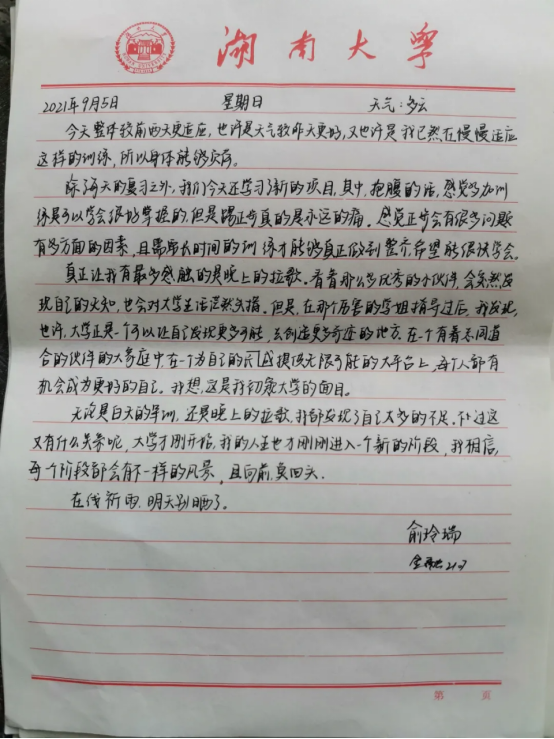 湖南大学
2021年9月5日 星期日 天气:多云
今天整体较前两天更适应,也许是天气较昨天更好,又也许是我已然在慢慢适应
这样的训练,所以身体能够负荷。
除了每天的复习之外,我们今天还学习了新的项目,其中,抱腰的话,感觉多加训
练是可以学会很好掌握的,但是踢正步真的是永远的痛。感觉正步会有很多问题
有多方面的因素,且需要长时间的训练才能够真正做到整齐,希望能很快学会。
真正让我有最多感触的是晚上的拉歌。看着那么多优秀的小伙伴,会突然发
现自己的无知,也会对大学生活茫然失措。但是,在那个厉害的学姐指导过后,我发现,
也许,大学正是一个可以让自己发现更多可能,去创造更多奇迹的地方。在一个有着志同道
合的伙伴的大家庭中,在一个为自己的提供无限可能的大平台上,每个人都有
机会成为更好的自己。我想,这是我初象大学的面目。
无论是白天的军训,还是晚上的拉歌,我都发现了自己太多的不足,不过这
又有什么关系呢,大学才刚开始,我的人生也才刚刚进入一个新的阶段,我相信,
每个阶段都会有不一样的风景,且向前,莫回头.
在线祈雨,明天别晒了。
俞玲瑞
金融21
第 页